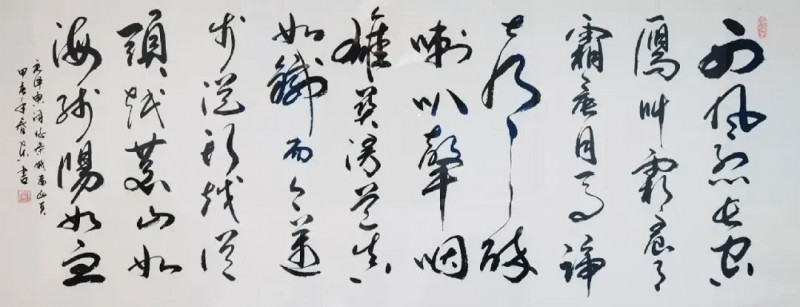 西风烈长空
鴈叫霜晨月
霜晨月马蹄
声碎
喇叭聲咽
雄関漫道真
如鐵而今迈
步從头越從
頭越苍山如
海残陽如血
毛泽东词忆秦娥娄山关
甲辰年春 书